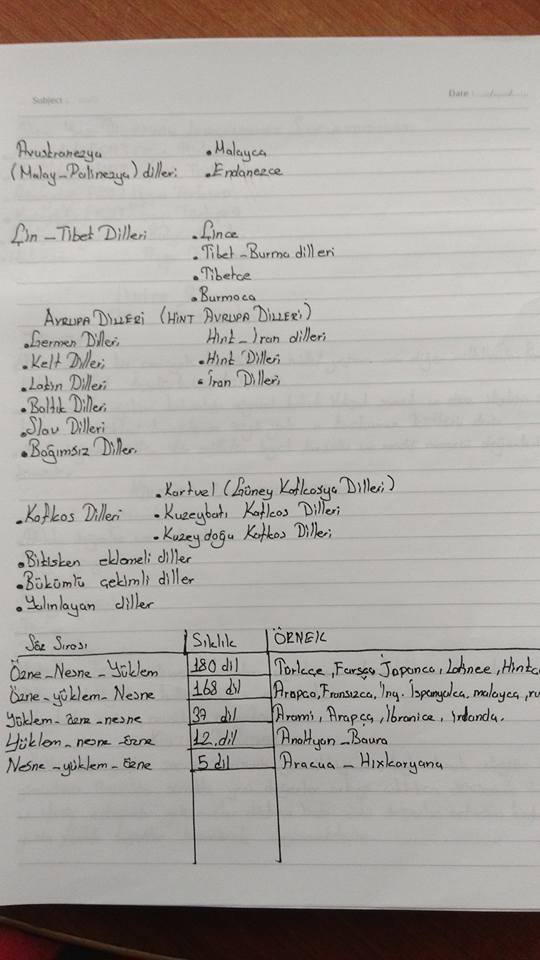 Subject : Date :
Avustronezya • Malayca
(Malay-Polinezya) dilleri • Endanezce
Çin - Tibet Dilleri • Çince
• Tibet - Burma dilleri
• Tibetce
• Burmaca
AVRUPA DİLLERİ (HİNT AVRUPA DİLLERİ)
• Germen Dilleri Hint - İran dilleri
• Kelt Dilleri • Hint Dilleri
• Latin Dilleri • İran Dilleri
• Baltık Dilleri
• Slav Dilleri
• Bağımsız Diller
• Kartvel (Güney Kafkasya Dilleri)
• Kafkas Dilleri • Kuzeybatı Kafkas Dilleri
• Kuzey doğu Kafkas Dilleri
• Bitişken eklemeli diller
• Bükümlü çekimli diller
• Yalınlayan diller
Söz Sırası Sıklık ÖRNEK
Özne - Nesne - Yüklem 180 dil Türkçe, Farsça Japonca, Latince, Hintce
Özne - yüklem - Nesne 168 dil Arapca, Fransızca, İng. İspanyolca, malayca, ru
Yüklem - özne - nesne 37 dil Arami, Arapça, İbranice, İrlanda.
Yüklem - nesne - özne 12. dil - Baura
Nesne - yüklem - özne 5 dil - Hixkaryana